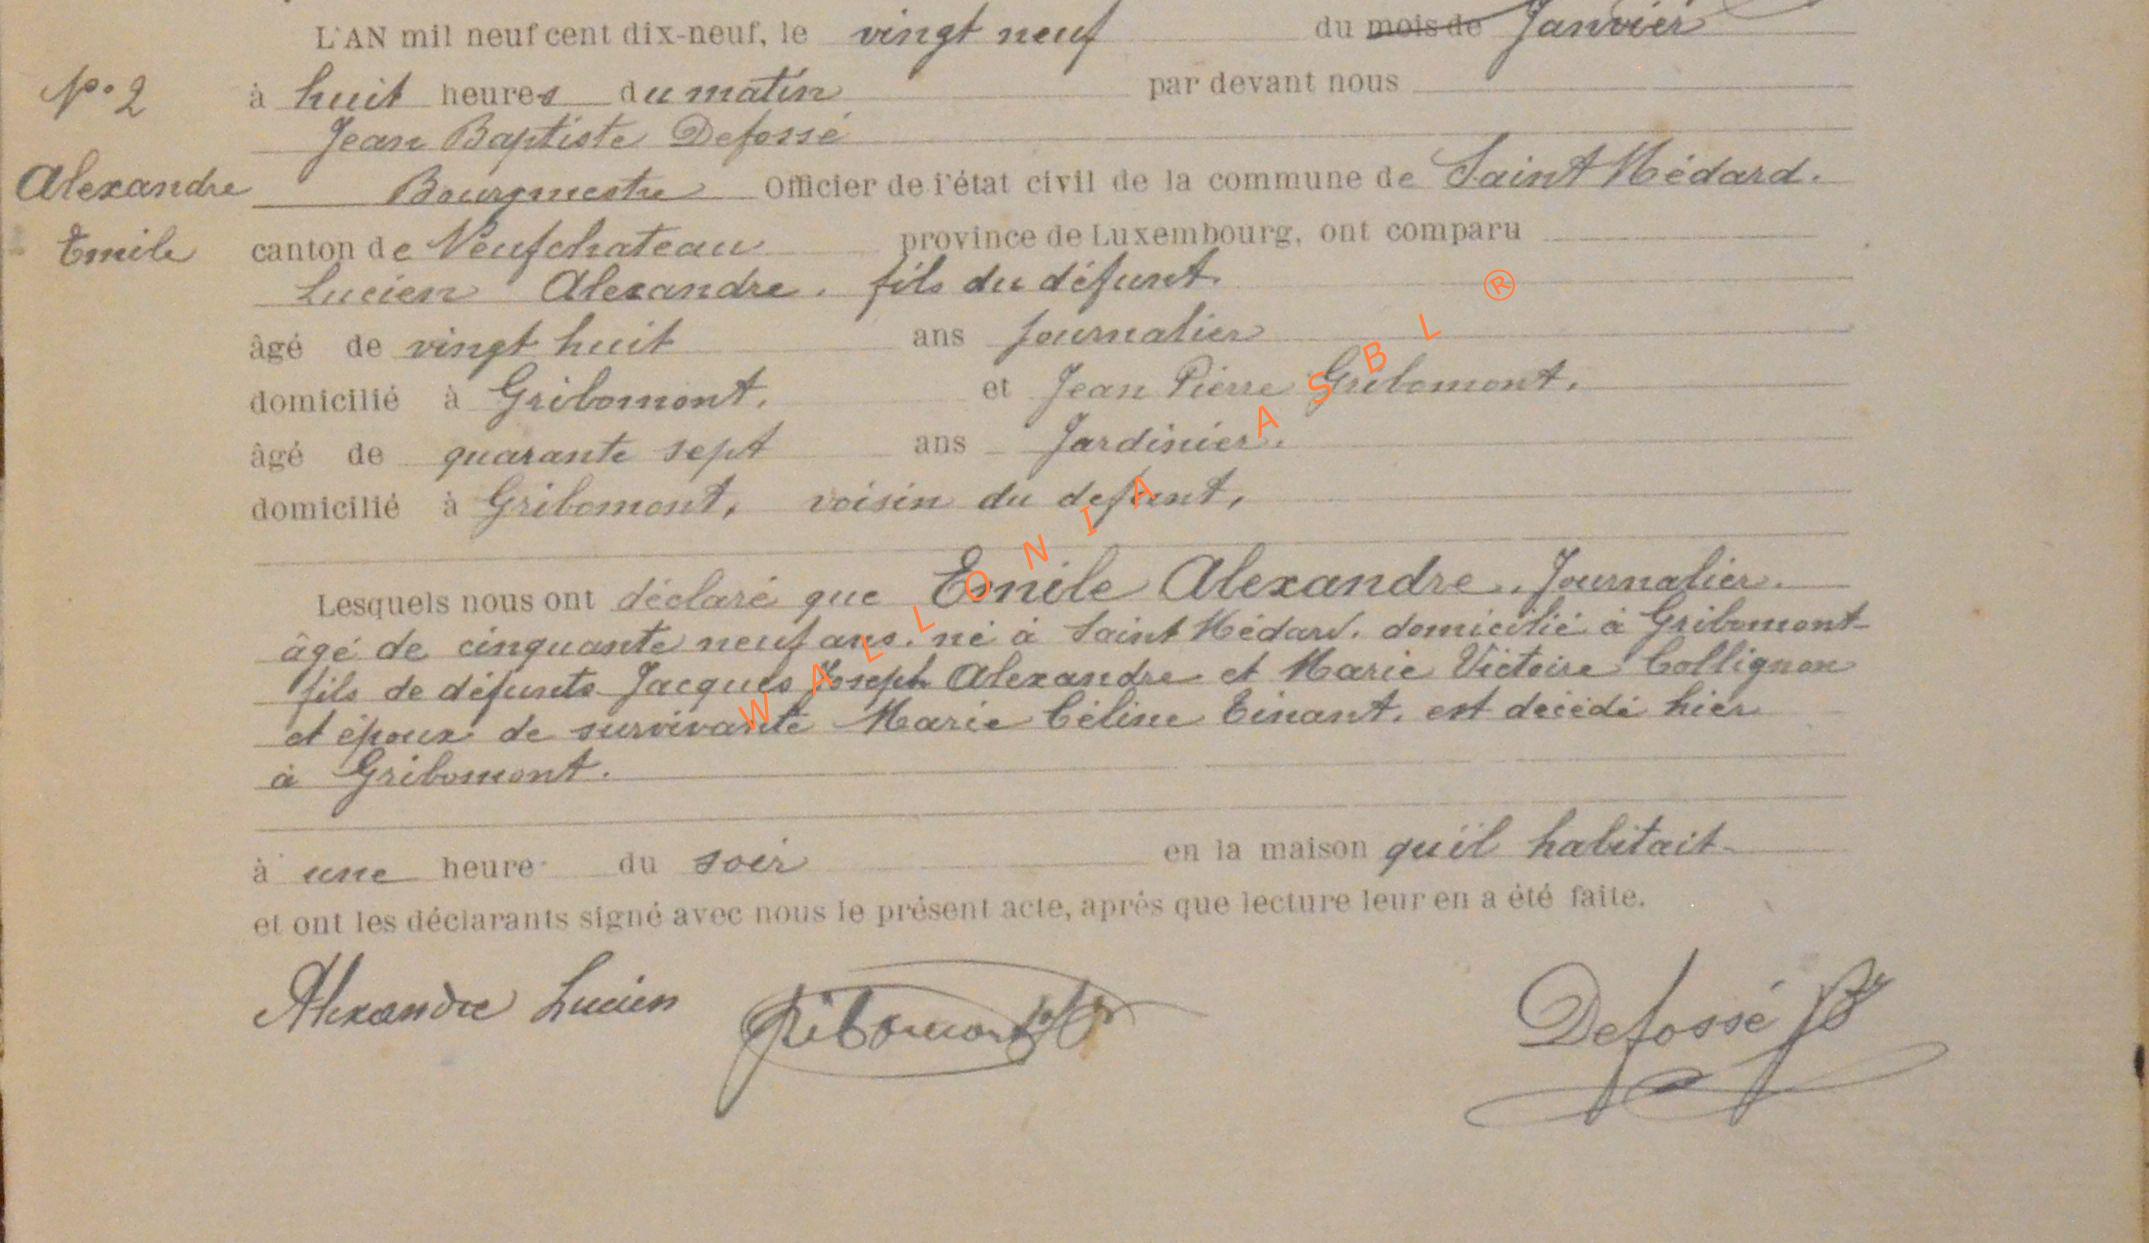 L'AN mil neuf cent dix-neuf, le vingt neuf du mois de Janvier
N° 2
à huit heures du matin par devant nous
Jean Baptiste Defossé
Alexandre
Bourgmestre Officier de l'état civil de la commune de Saint Médard.
Emile
canton de Neufchateau province de Luxembourg, ont comparu
Lucien Alexandre. fils du défunt.
âgé de vingt huit ans journalier
domicilié à Gribomont. et Jean Pierre Gribomont.
âgé de quarante sept ans Jardinier.
domicilié à Gribomont, voisin du defunt,
Lesquels nous ont déclaré que Emile Alexandre. Journalier.
âgé de cinquante neuf ans. né à Saint Médard. domicilié à Gribomont
fils de défunts Jacques Joseph Alexandre et Marie Victoire Collignon
et époux de survivante Marie Céline Tinant. est décédé hier
à Gribomont.
à une heure du soir en la maison qu'il habitait
et ont les déclarants signé avec nous le présent acte, après que lecture leur en a été faite.
Alexandre Lucien Gribomont Defossé JB
WALLONIA ASBL ®